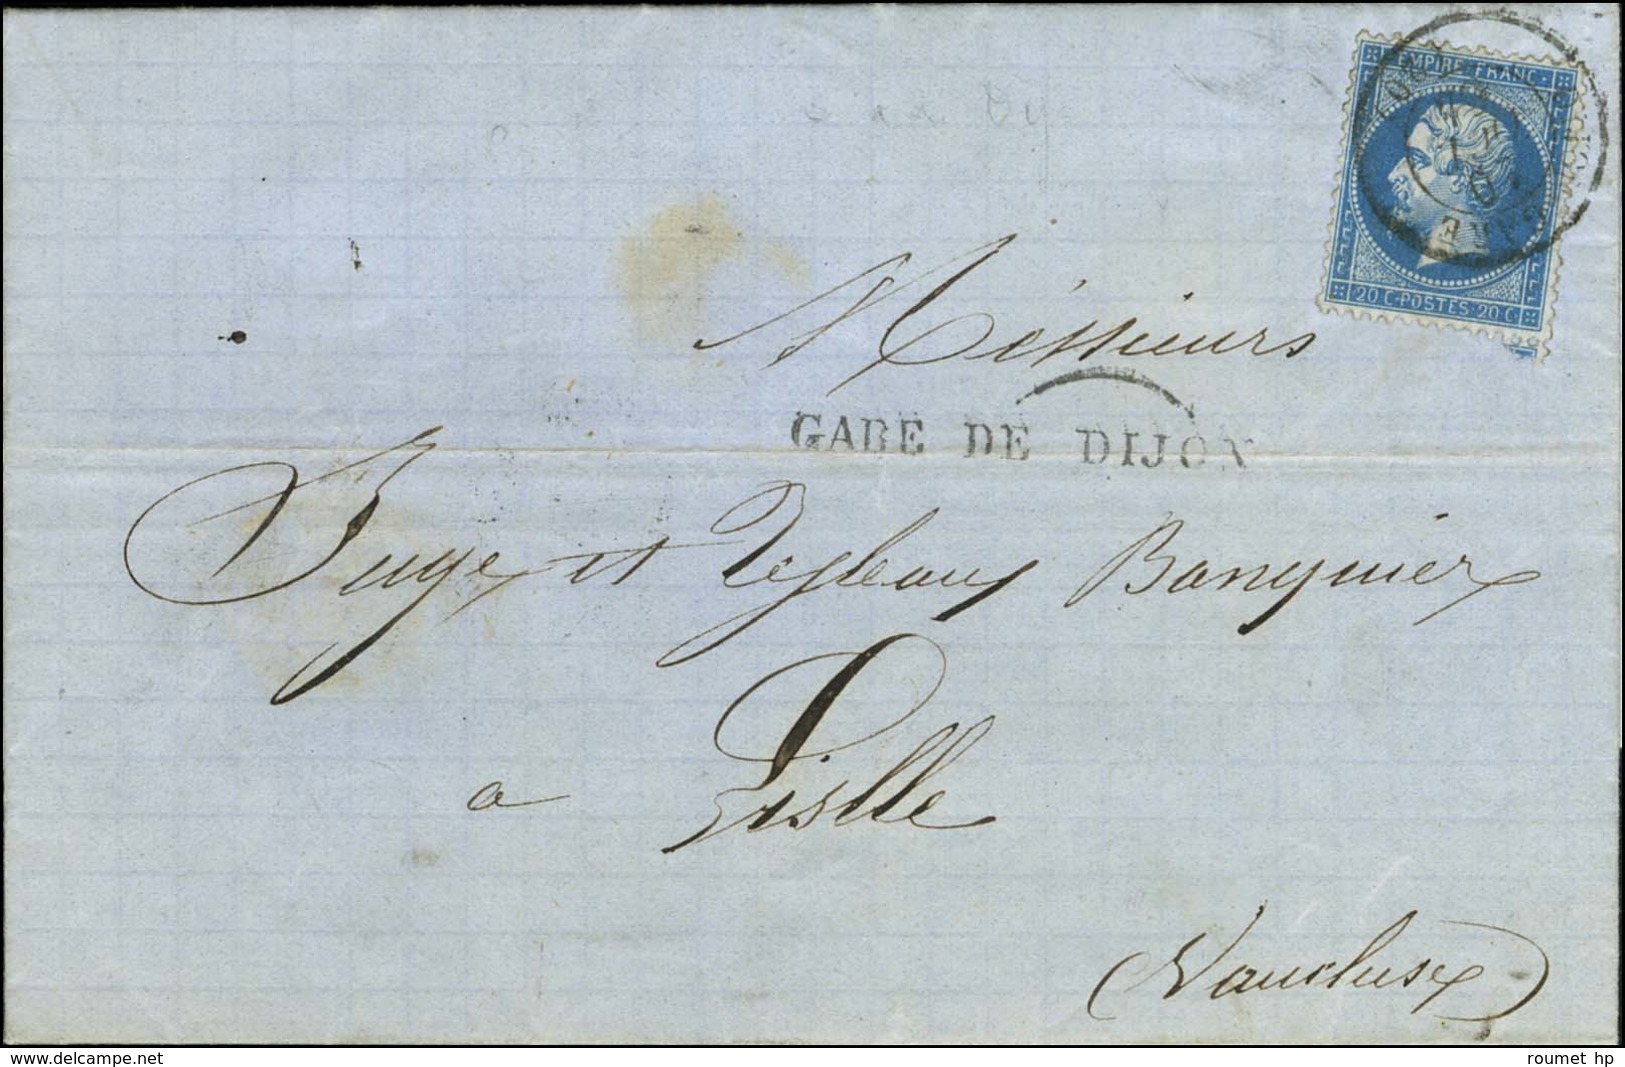 EMPIRE FRANC
20 C · POSTES · 20 C
Messieurs
GARE DE DIJON
et Banquiers
a Lislle
(Vaucluse)
www.delcampe.net
roumet hp